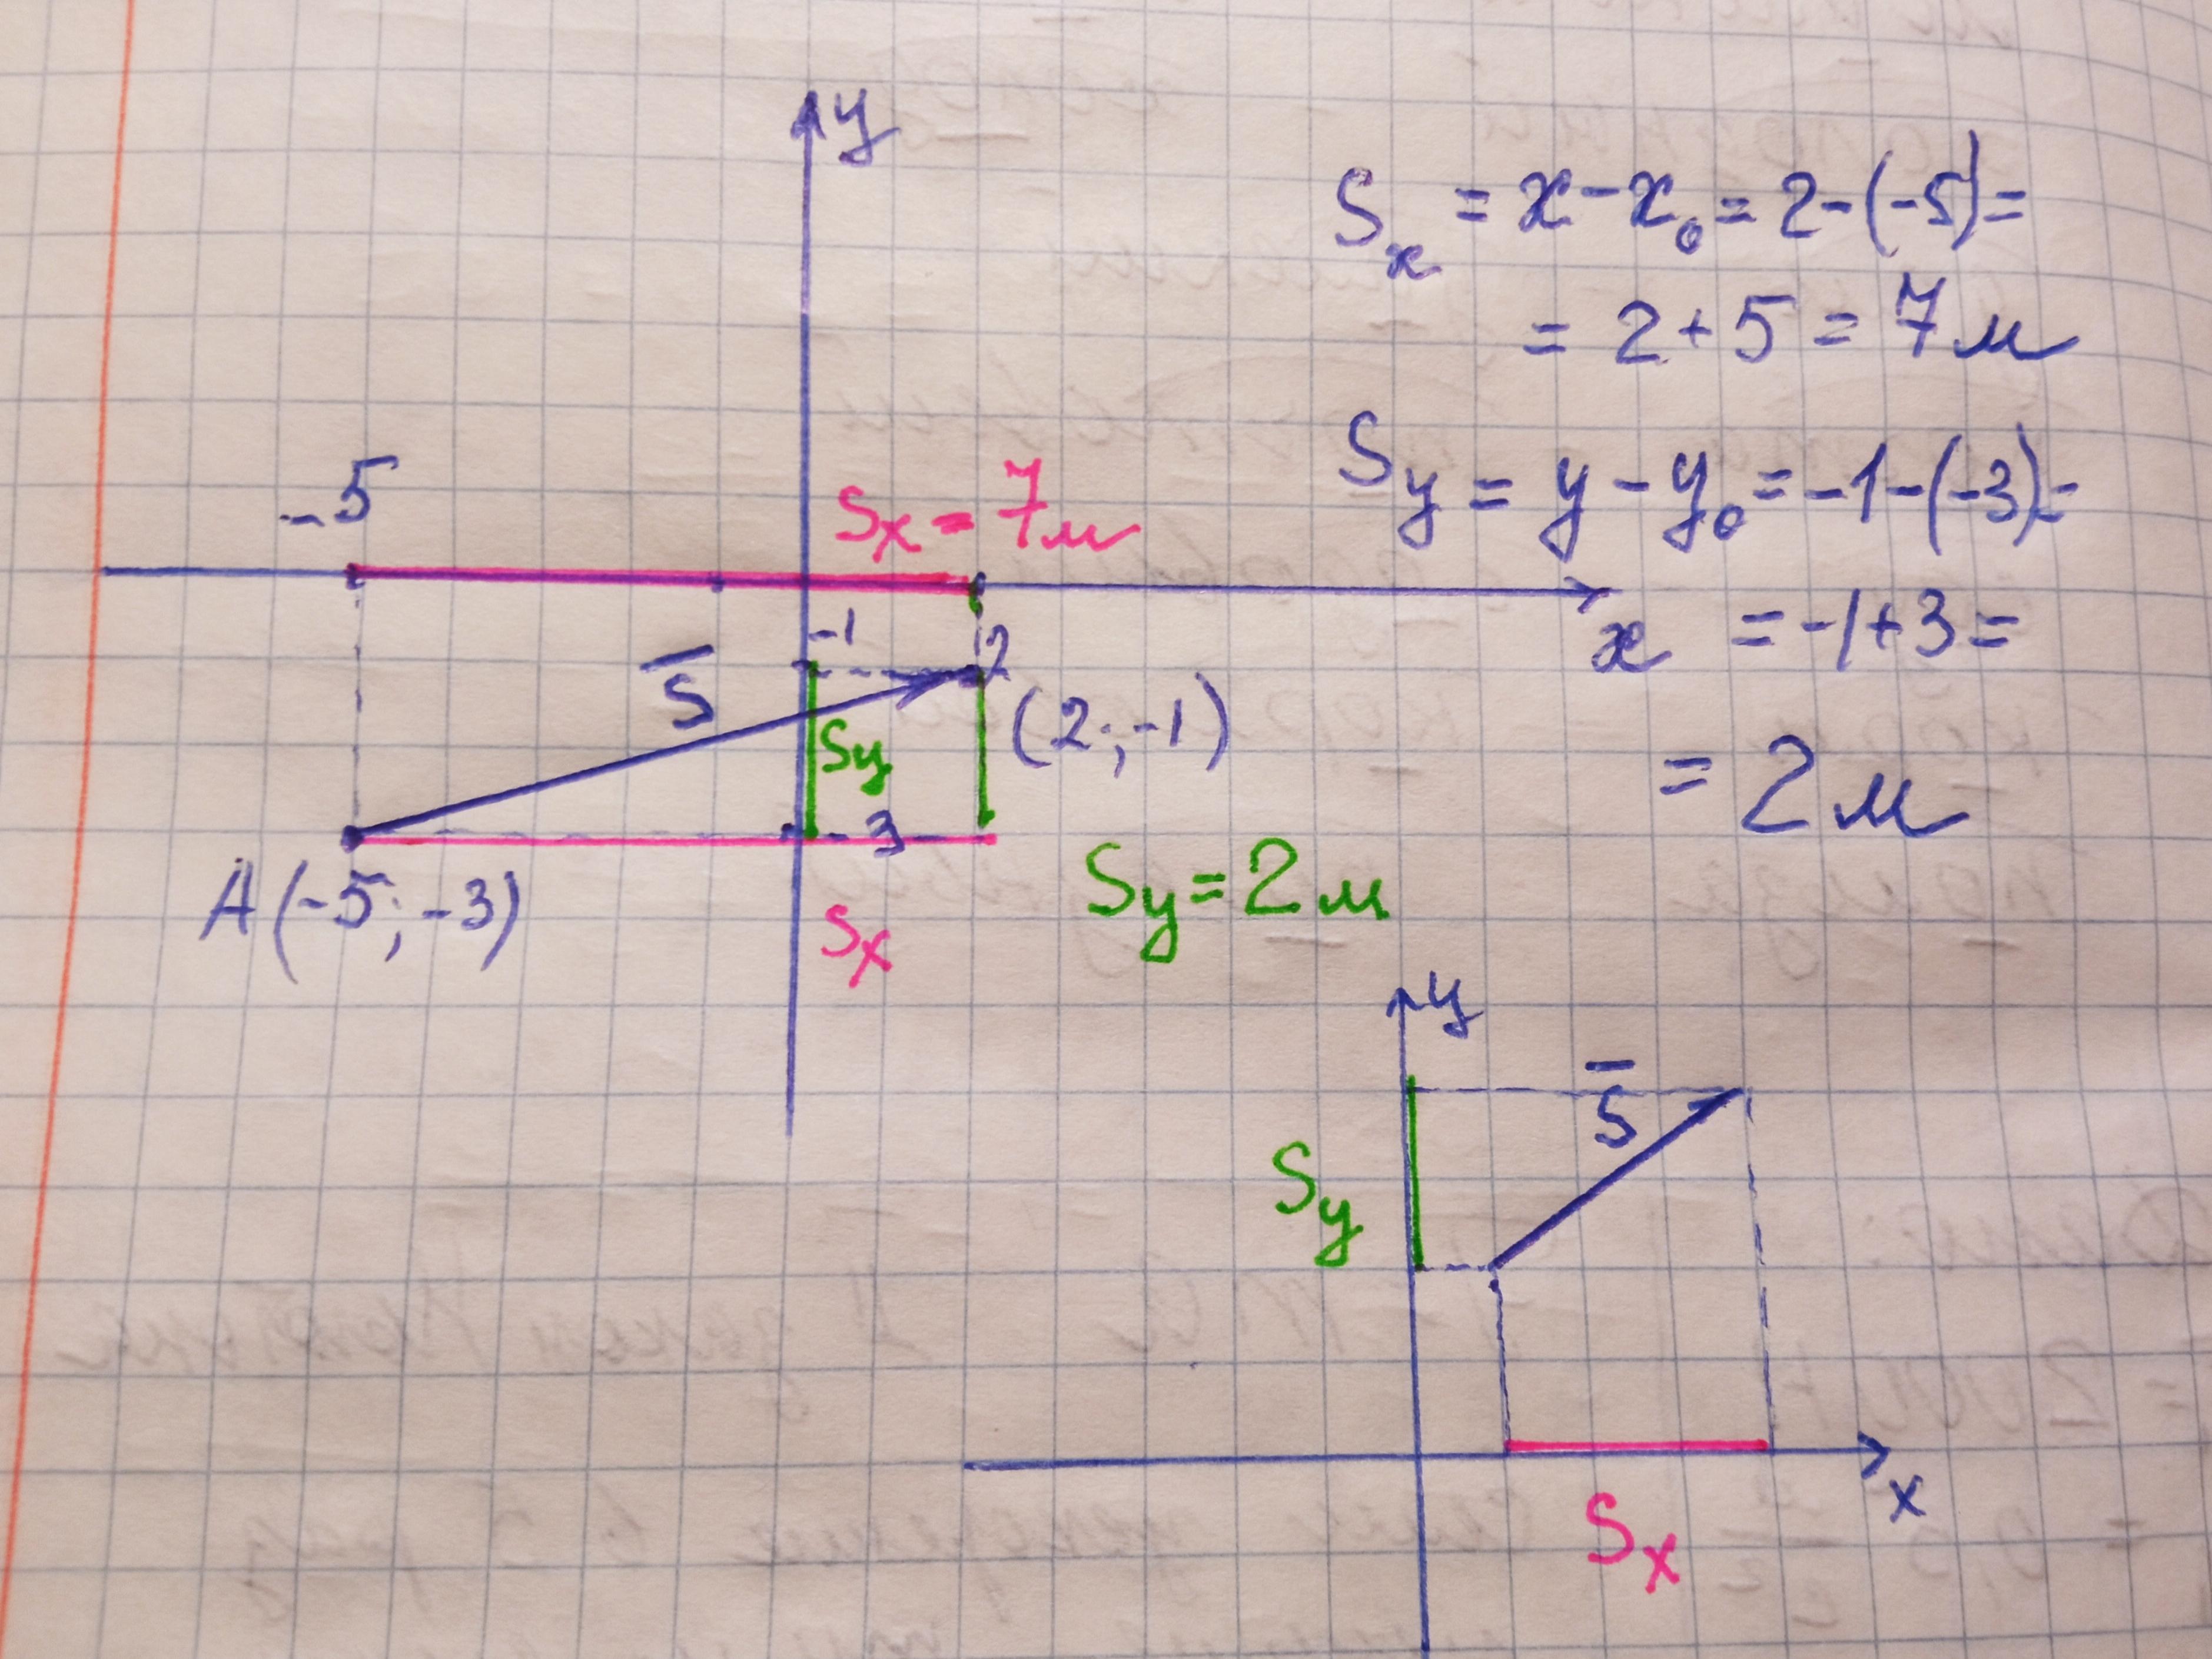 y
S_x = x - x_0 = 2 - (-5) =
= 2 + 5 = 7 м
-5
S_x = 7 м
S_y = y - y_0 = -1 - (-3) =
x
= -1 + 3 =
= 2 м
-1
2
S̄
(2; -1)
S_y
-3
A (-5; -3)
S_x
S_y = 2 м
y
S̄
S_y
x
S_x